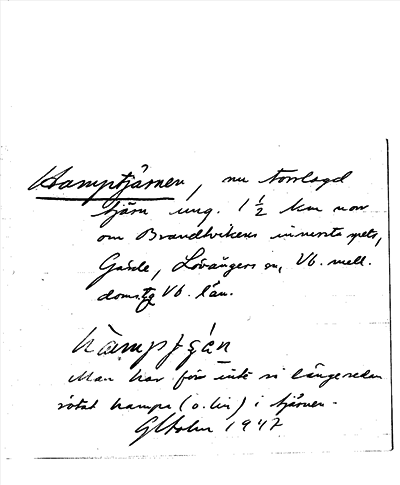 Hamptjärnen, nu torrlagd
tjärn ung. 1 1/2 km norr
om Brandtvikens innersta spets,
Gärde, Lövångers sn, Vb. mell.
doms. Vb. län.
Man har för inte så länge sedan
rötat hampa (o. lin) i tjärnen.
GHolm 1947